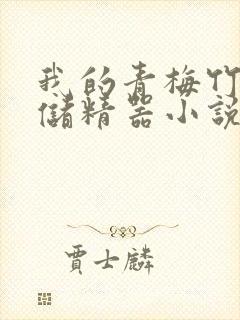 我的青梅竹
儲精器小說
賈士麟